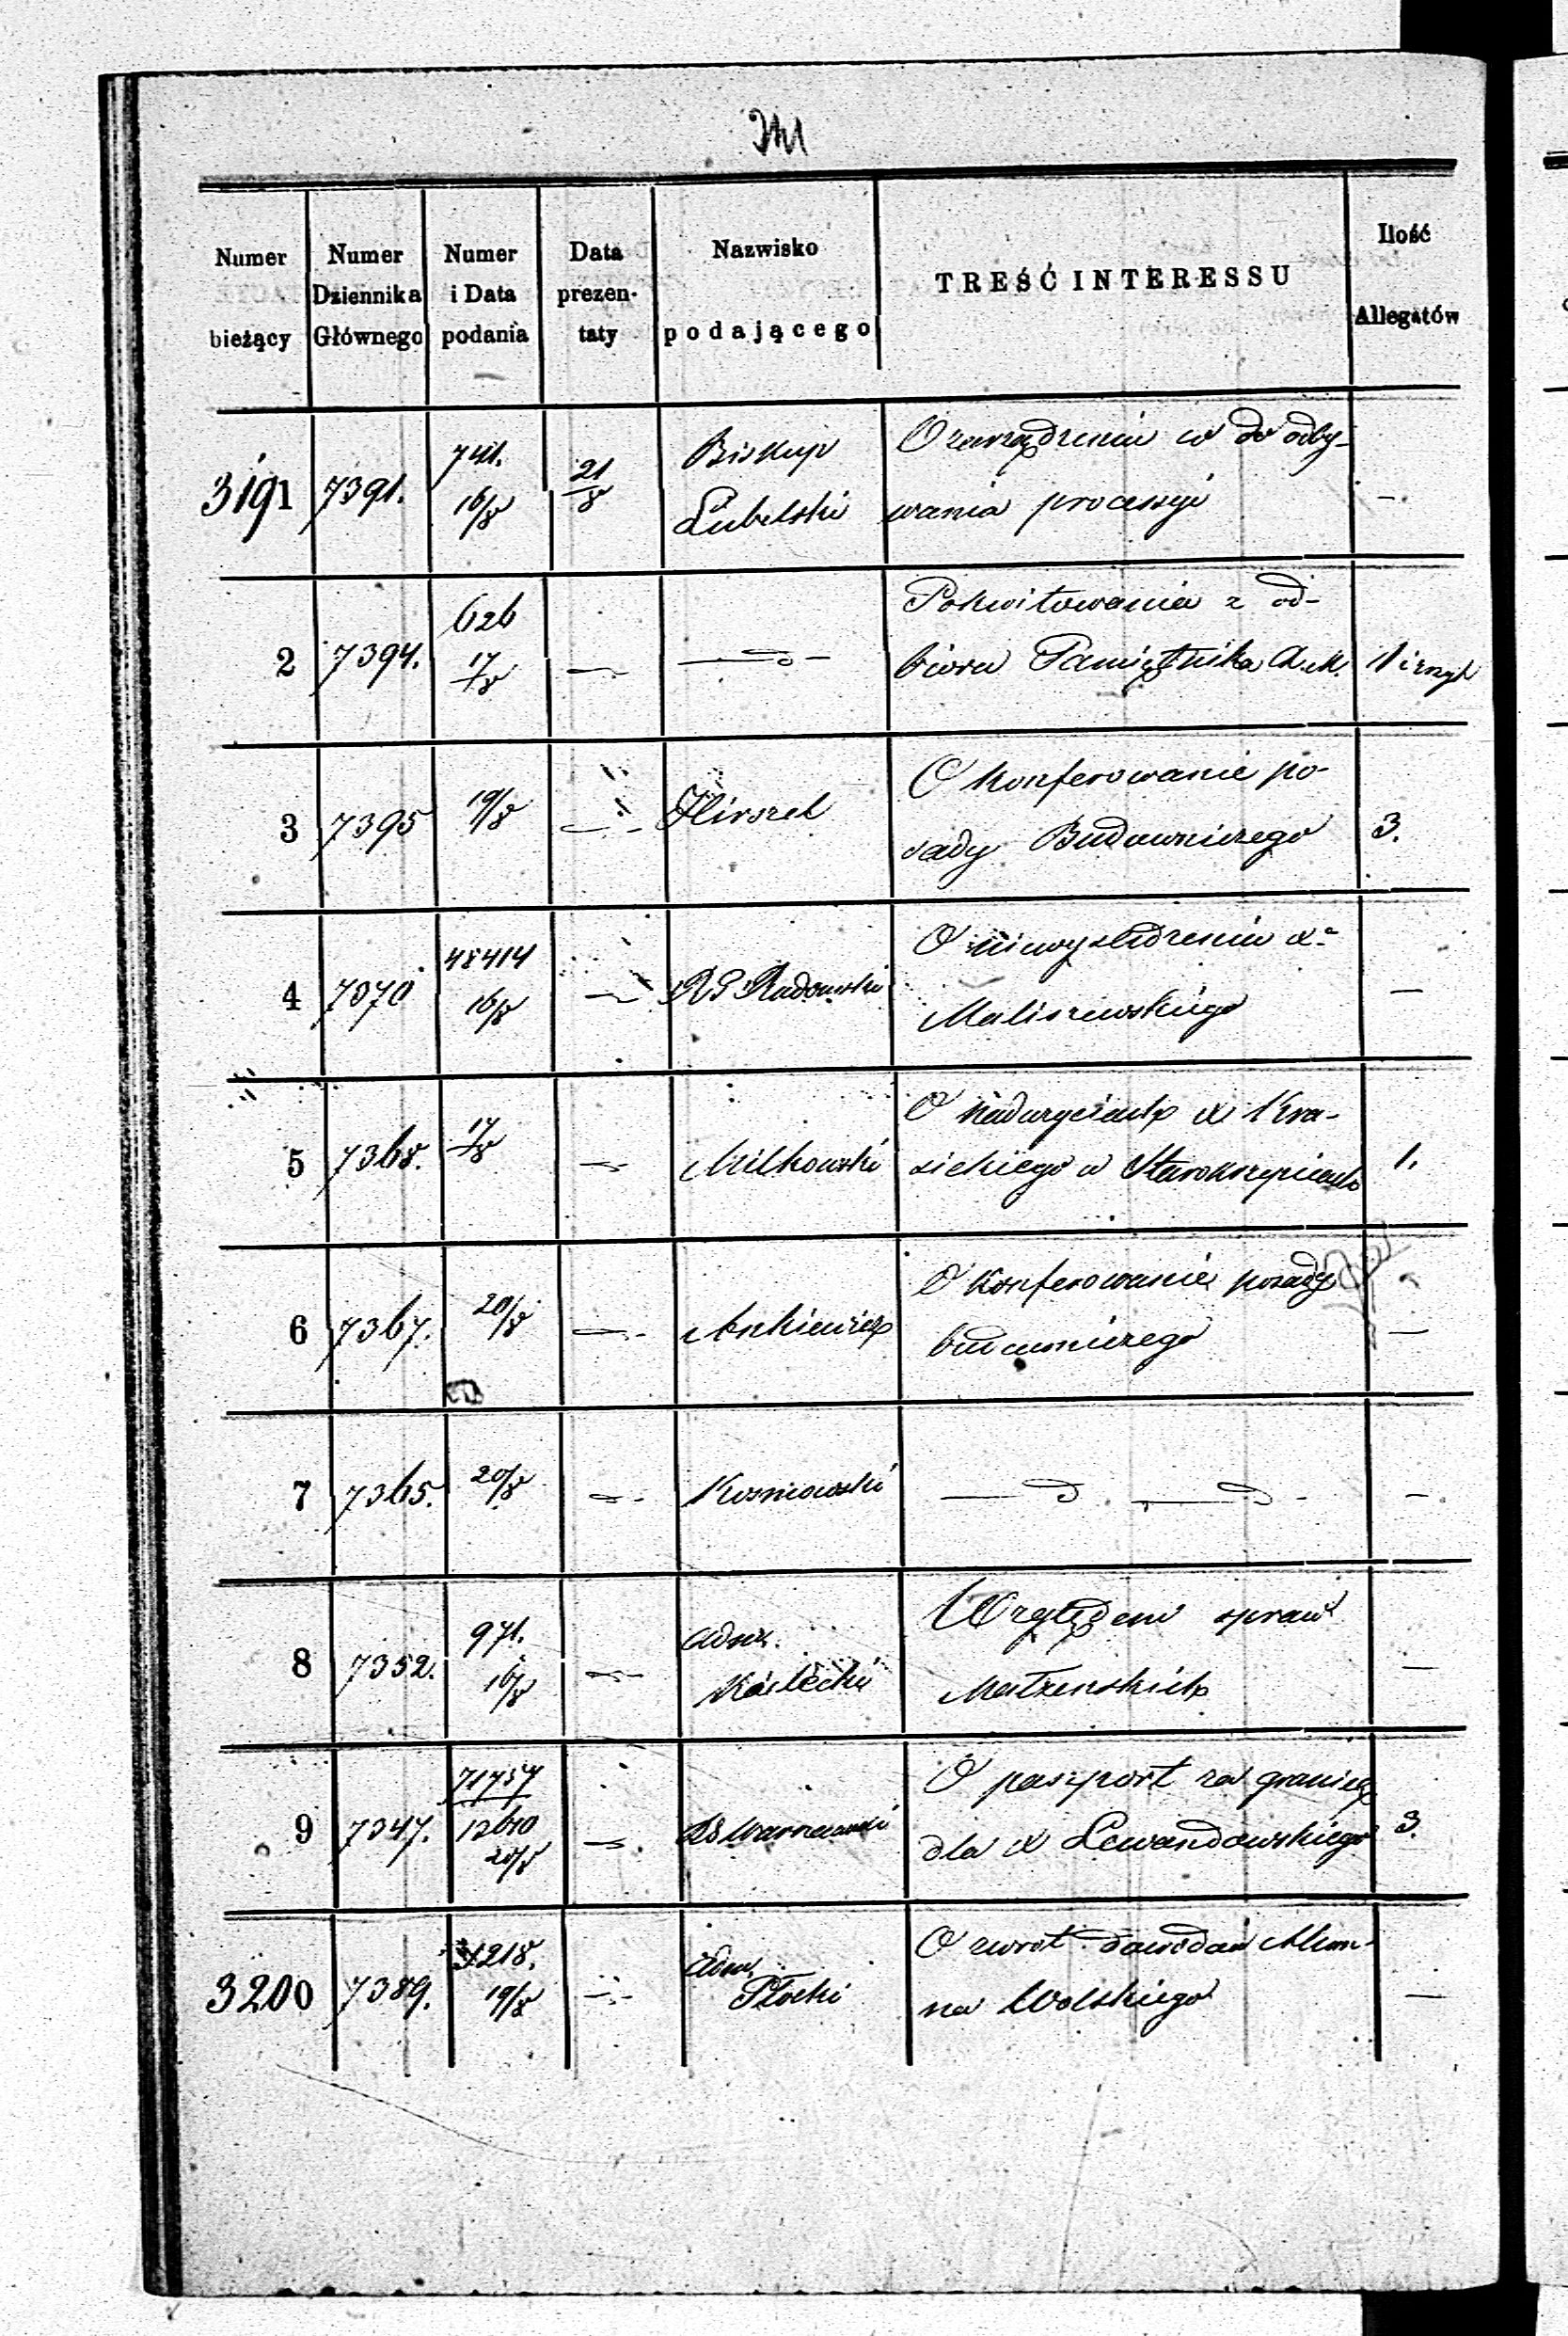 Numer bieżący
Numer Dziennika Głównego
Numer i Data podania
Data prezen-taty
Nazwisko podającego
TREŚĆ INTERESSU
Ilość Allegatów
3191 7391. 741. 16/8 21/8 Biskup Lubelski
O zarządzeniu w do odby-
wania processyi —
2 7394. 626 17/8 — — " —
Pokwitowania z od-
bioru Pamiętnika
3 7395 19/8 — Hirszel
O konferowanie po-
sady Budowniczego 3.
4 7070 48414 16/8 — RG Radomski
O niewyśledzeniu x
Maliszewskiego —
5 7368. 17/8 — Milkowski
O nadużyciach x Kra-
sickiego w 1.
6 7367. 20/8 — Ankiewicz
O konferowanie posady
budowniczego —
7 7365. 20/8 — Kosmowski
— " — " — —
8 7352. 971. 16/8 — Adm.
Względem spraw
Małżeńskich —
9 7347. 71757 12610 20/8 — RG Warszawski
O paszport za granicę
dla x Lewandowskiego 3.
3200 7389. 1218. 19/8 — Adm. Płocki
O zwrot dowodów Alum-
na Wolskiego —